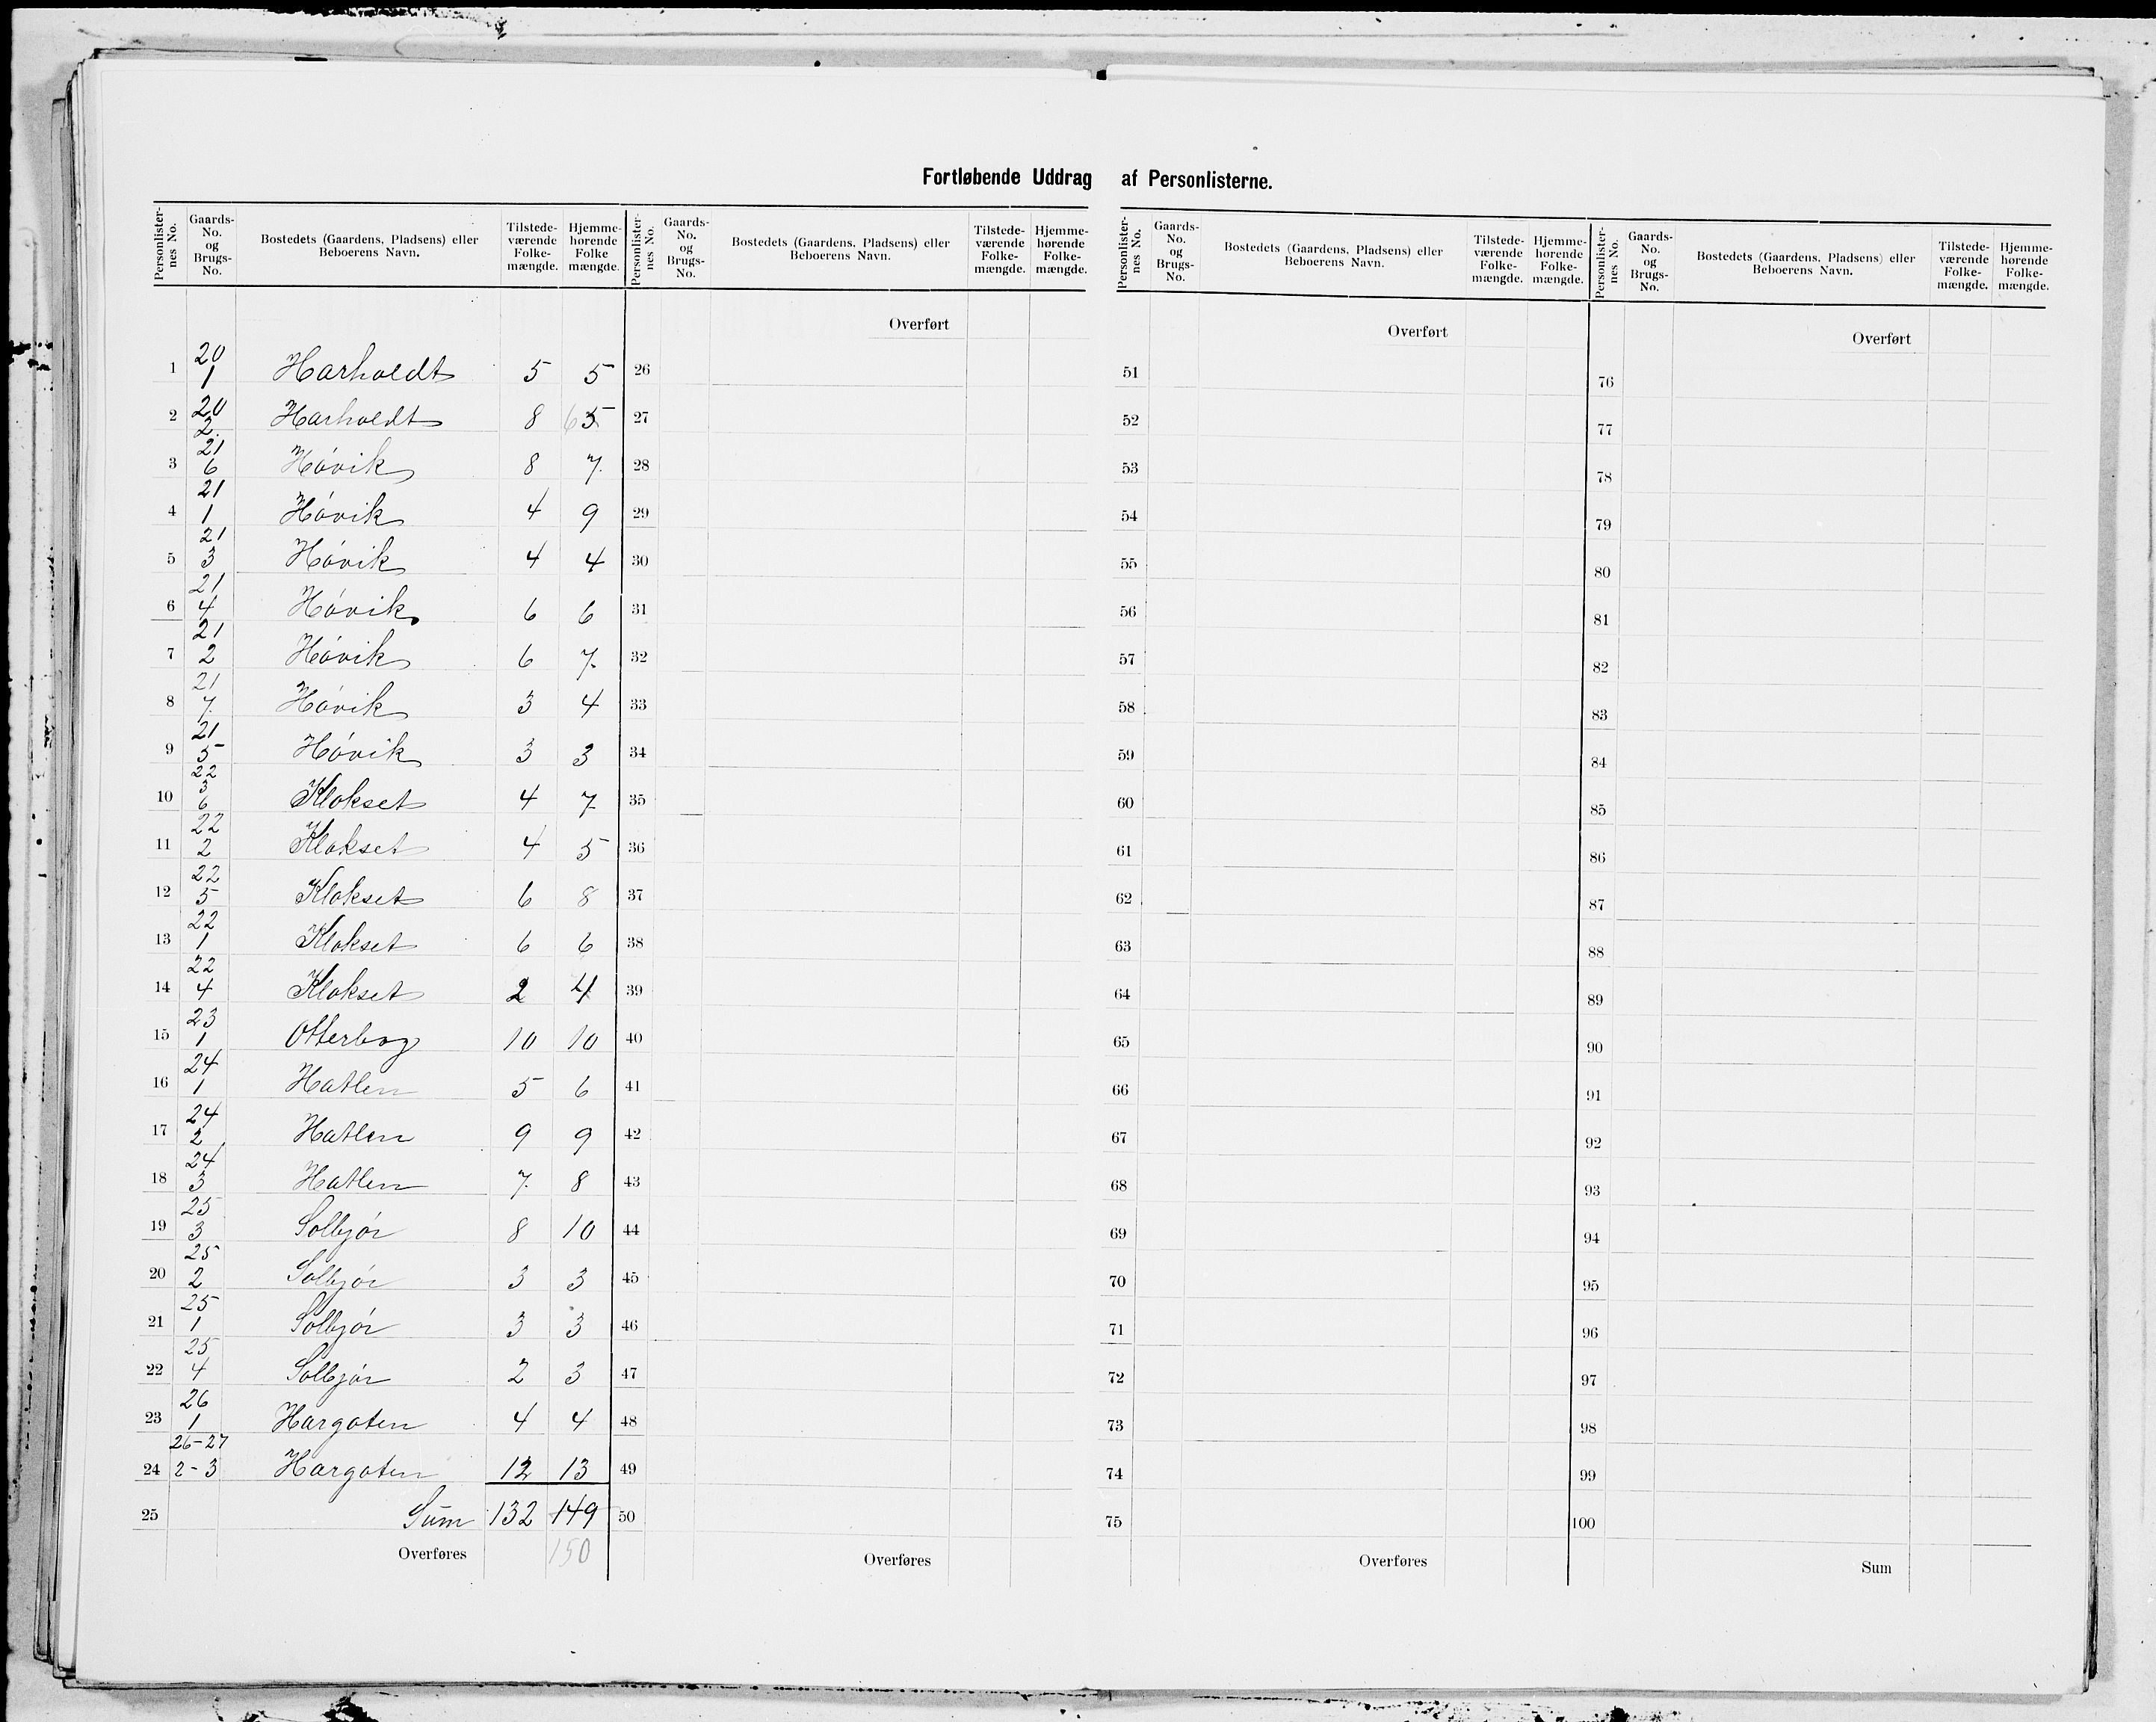 Fortløbende Uddrag af Personlisterne.
Personlister-nes No. Gaards-No. og Brugs-No. Bostedets (Gaardens, Pladsens) eller Beboerens Navn. Tilstede-værende Folke-mængde. Hjemme-hørende Folke mængde. Personlister-nes No. Gaards-No. og Brugs-No. Bostedets (Gaardens, Pladsens) eller Beboerens Navn. Tilstede-værende Folke-mængde. Hjemme-hørende Folke-mængde. Personlister-nes No. Gaards-No. og Brugs-No. Bostedets (Gaardens, Pladsens) eller Beboerens Navn. Tilstede-værende Folke-mængde. Hjemme-hørende Folke-mængde. Personlister-nes No. Gaards-No. og Brugs-No. Bostedets (Gaardens, Pladsens) eller Beboerens Navn. Tilstede-værende Folke-mængde. Hjemme-hørende Folke-mængde.
Overført Overført Overført
1 20 1 Harholdt 5 5 26 51 76
2 20 2 Harholdt 8 6 5 27 52 77
3 21 6 Hóvik 8 7 28 53 78
4 21 1 Hóvik 4 9 29 54 79
5 21 3 Hóvik 4 4 30 55 80
6 21 4 Hóvik 6 6 31 56 81
7 21 2 Hóvik 6 7 32 57 82
8 21 7 Hóvik 3 4 33 58 83
9 21 5 Hóvik 3 3 34 59 84
10 22 3 6 Klokset 4 7 35 60 85
11 22 2 Klokset 4 5 36 61 86
12 22 5 Klokset 6 8 37 62 87
13 22 1 Klokset 6 6 38 63 88
14 22 4 Klokset 2 4 39 64 89
15 23 1 Otterbog 10 10 40 65 90
16 24 1 Hatlen 5 6 41 66 91
17 24 2 Hatlen 9 9 42 67 92
18 24 3 Hatlen 7 8 43 68 93
19 25 3 Solbjór 8 10 44 69 94
20 25 2 Solbjór 3 3 45 70 95
21 25 1 Solbjór 3 3 46 71 96
22 25 4 Solbjór 2 3 47 72 97
23 26 1 Hargoten 4 4 48 73 98
24 26-27 2-3 Hargoten 12 13 49 74 99
25 Sum 132 149 50 75 100
Overføres 150 Overføres Overføres Sum